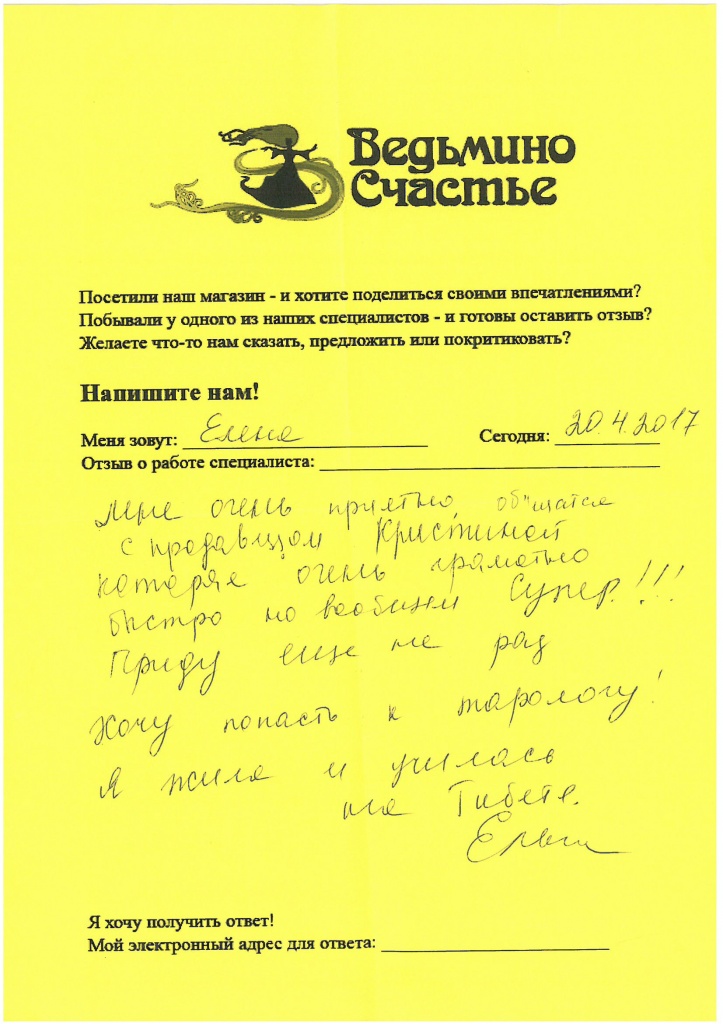 Ведьмино
Счастье
Посетили наш магазин - и хотите поделиться своими впечатлениями?
Побывали у одного из наших специалистов - и готовы оставить отзыв?
Желаете что-то нам сказать, предложить или покритиковать?
Напишите нам!
Меня зовут: Елена Сегодня: 20.4.2017
Отзыв о работе специалиста:
Мне очень приятно общатся
с продавцом Кристиной
которае очень граматно
быстро но вообщем Супер!!!
Приду еще не раз
Хочу попасть к тарологу!
Я жила и училась
на Тибете.
Я хочу получить ответ!
Мой электронный адрес для ответа: